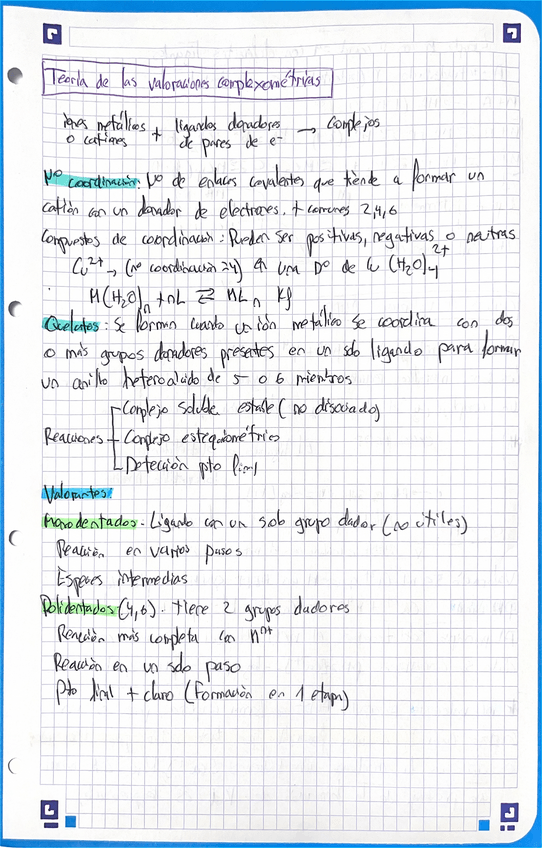 Teoría de las valoraciones complexométrias
iones metálicos + ligandos donadores → Complejos
o cationes de pares de e-
Nº coordinación: Nº de enlaces covalentes que tiende a formar un
catión con un donador de electrones. + comunes 2,4,6
Compuestos de coordinación: Pueden ser positivas, negativas o neutras
Cu2+ → (no coordinación =4) en una Dº de Cu (H2O)4 2+
M(H2O)n + nL ⇄ MLn Kf
Quelatos: Se forman cuando un ión metálico se coordina con dos
o más grupos donadores presentes en un solo ligando para formar
un anillo heterocíclido de 5 o 6 miembros
Complejo soluble estable (no disociado)
Reacciones Complejo estequiométrico
Detección pto final
Valorantes:
Monodentados. Ligando con un solo grupo dador (no útiles)
Reacción en varios pasos
Especies intermedias
Polidentados (4,6). tiene 2 grupos dadores
Reacción más completa con Mn+
Reacción en un solo paso
Pto final + claro (Formación en 1 etapa)